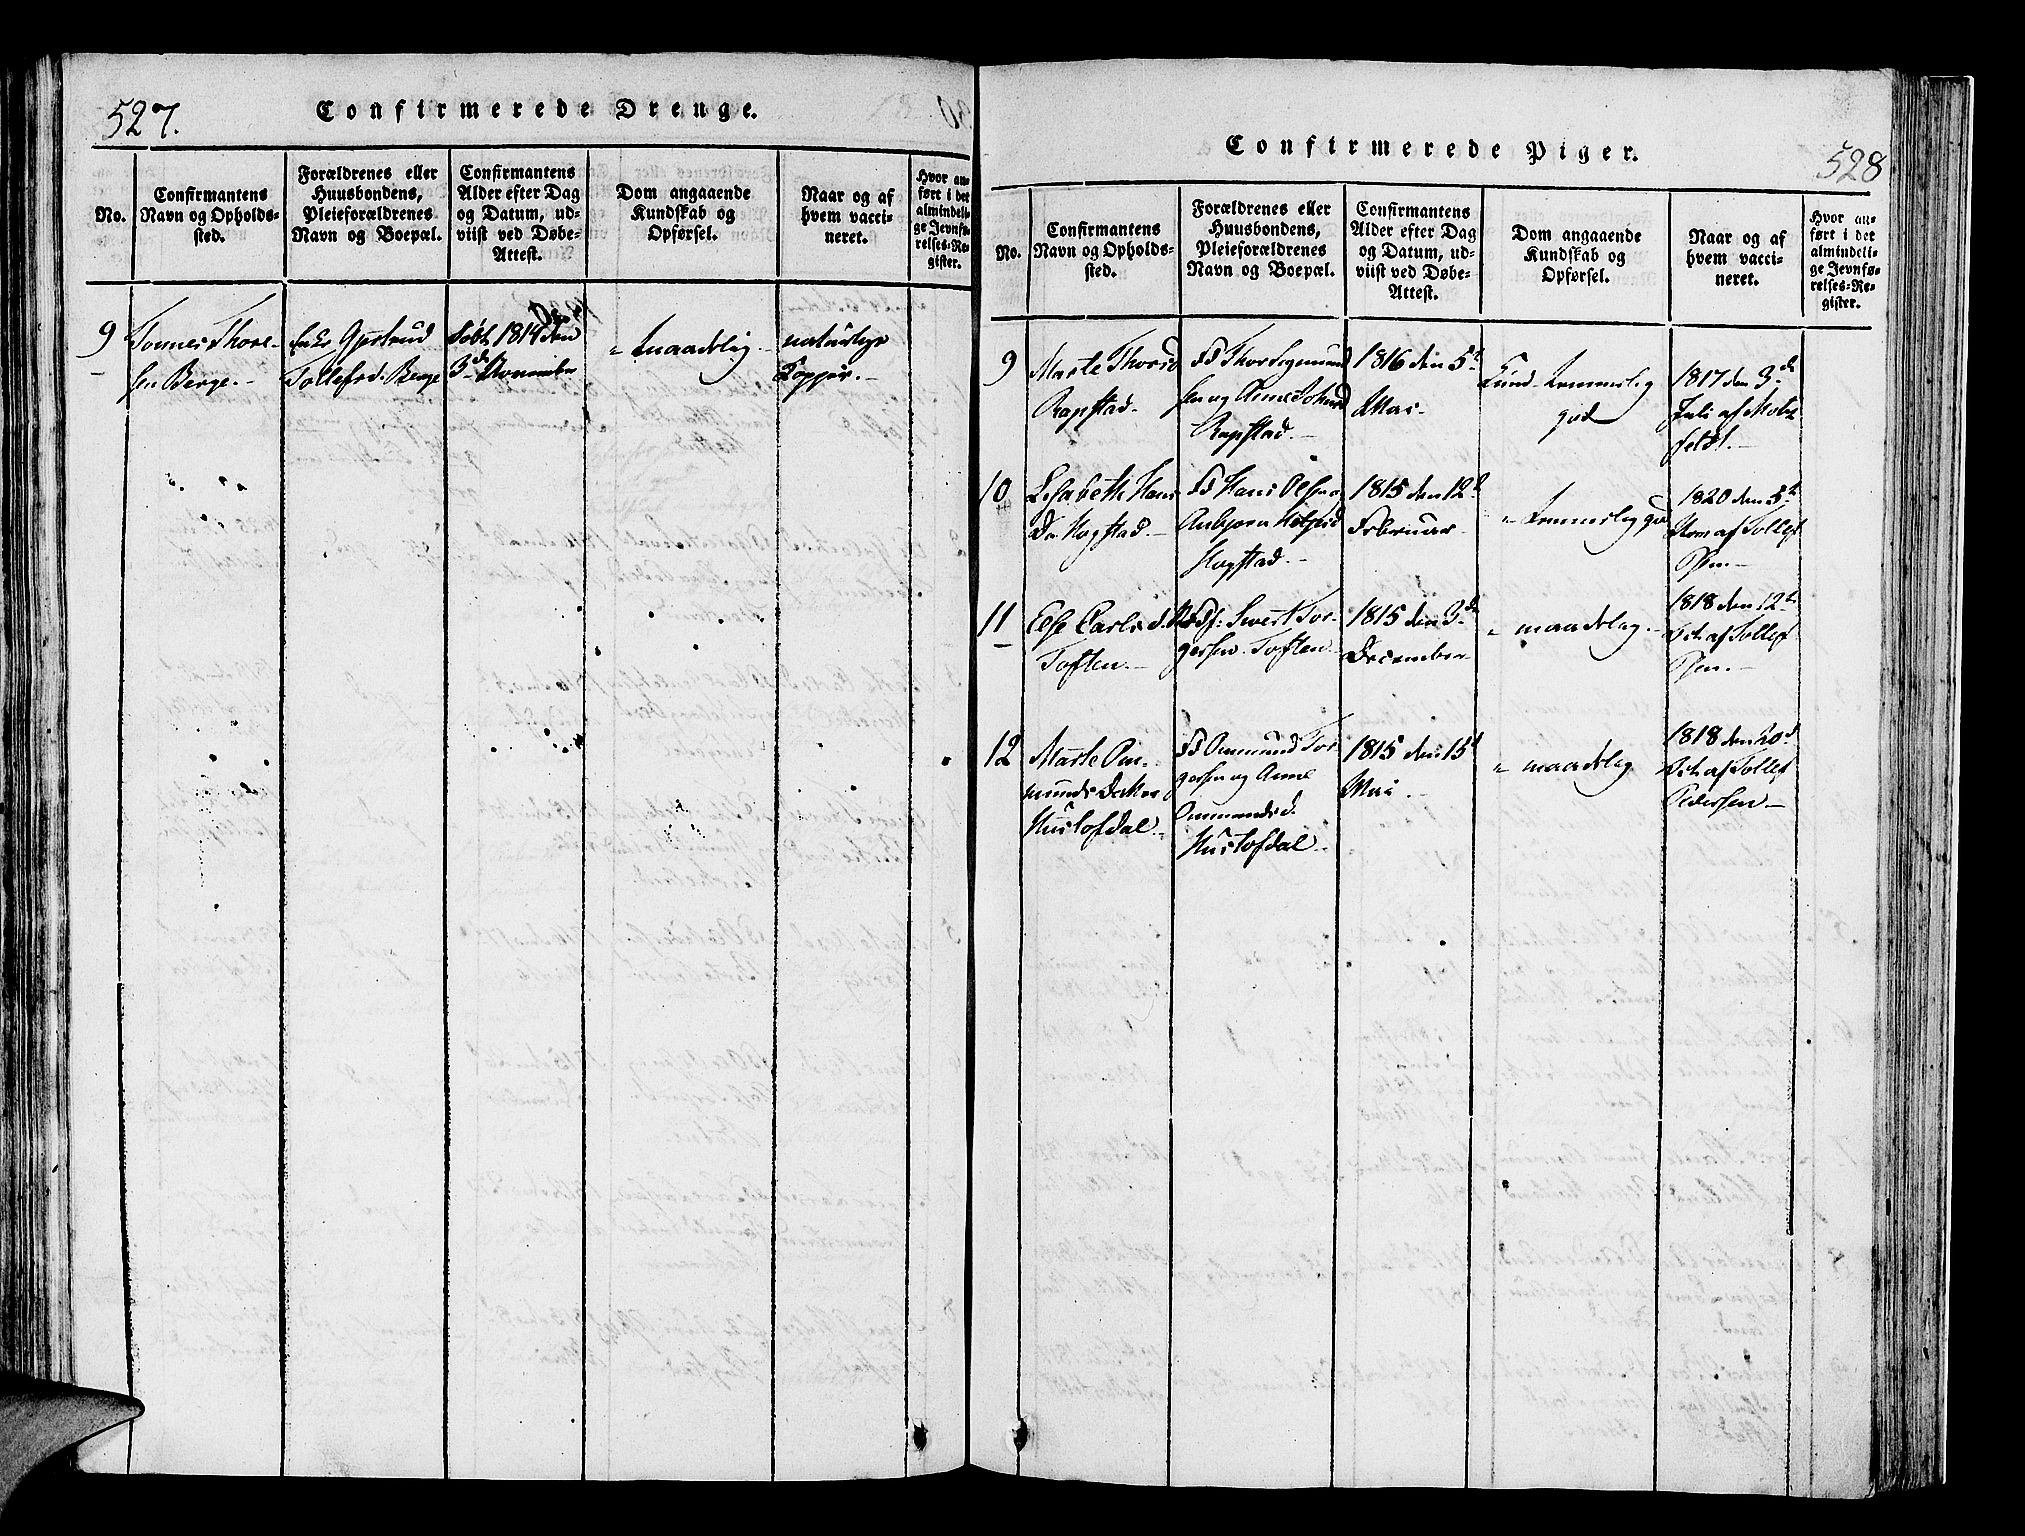 527.
Confirmerede Drenge.
No.
Confirmantens
Navn og Opholds-
sted.
Forældrenes eller
Huusbondens,
Pleieforældrenes
Navn og Boepæl.
Confirmantens
Alder efter Dag
og Datum, ud-
viist ved Døbe-
Attest.
Dom angaaende
Kundskab og
Opførsel.
Naar og af
hvem vacci-
neret.
Hvor an-
ført i det
almindeli-
ge Jevnfø-
relses-Re-
gister.
9
Tonnes Thore-
sen Berge.
Enke
Tollefsd. Berge
født 1814 den
3d November
maadelig
naturlige
Kopper.
Confirmerede Piger.
528
No.
Confirmantens
Navn og Opholds-
sted.
Forældrenes eller
Huusbondens,
Pleieforældrenes
Navn og Boepæl.
Confirmantens
Alder efter Dag
og Datum, ud-
viist ved Døbe-
Attest.
Dom angaaende
Kundskab og
Opførsel.
Naar og af
hvem vacci-
neret.
Hvor an-
ført i det
almindeli-
ge Jevnfø-
relses-Re-
gister.
9
Marte Thorsd
Rapstad.
F
og Anne
Rapstad.
1816 den 5t
Mai.
Kund. temmelig
god
1817 den 3d
Juli af
10
Elisabeth Hans
Dr. Hogstad.
F Hans Olsen og
Hogstad.
1815 den 12t
Februar
temmelig god
1820 den 5t
af Tollef
11
Else Carlsd.
Toften.
Sivert Tor-
gersen Toften
1815 den 3d
December
maadelig
1818 den 12t
Oct. af Tollef
12
Marte Om-
munds Datter
Hustofdal
F Ommund Tor-
gersen og Anne
Ommundsd.
Hustofdal
1815 den 15t
Mai.
maadelig
1818 den 20d
Oct. af Tollef
Pedersen